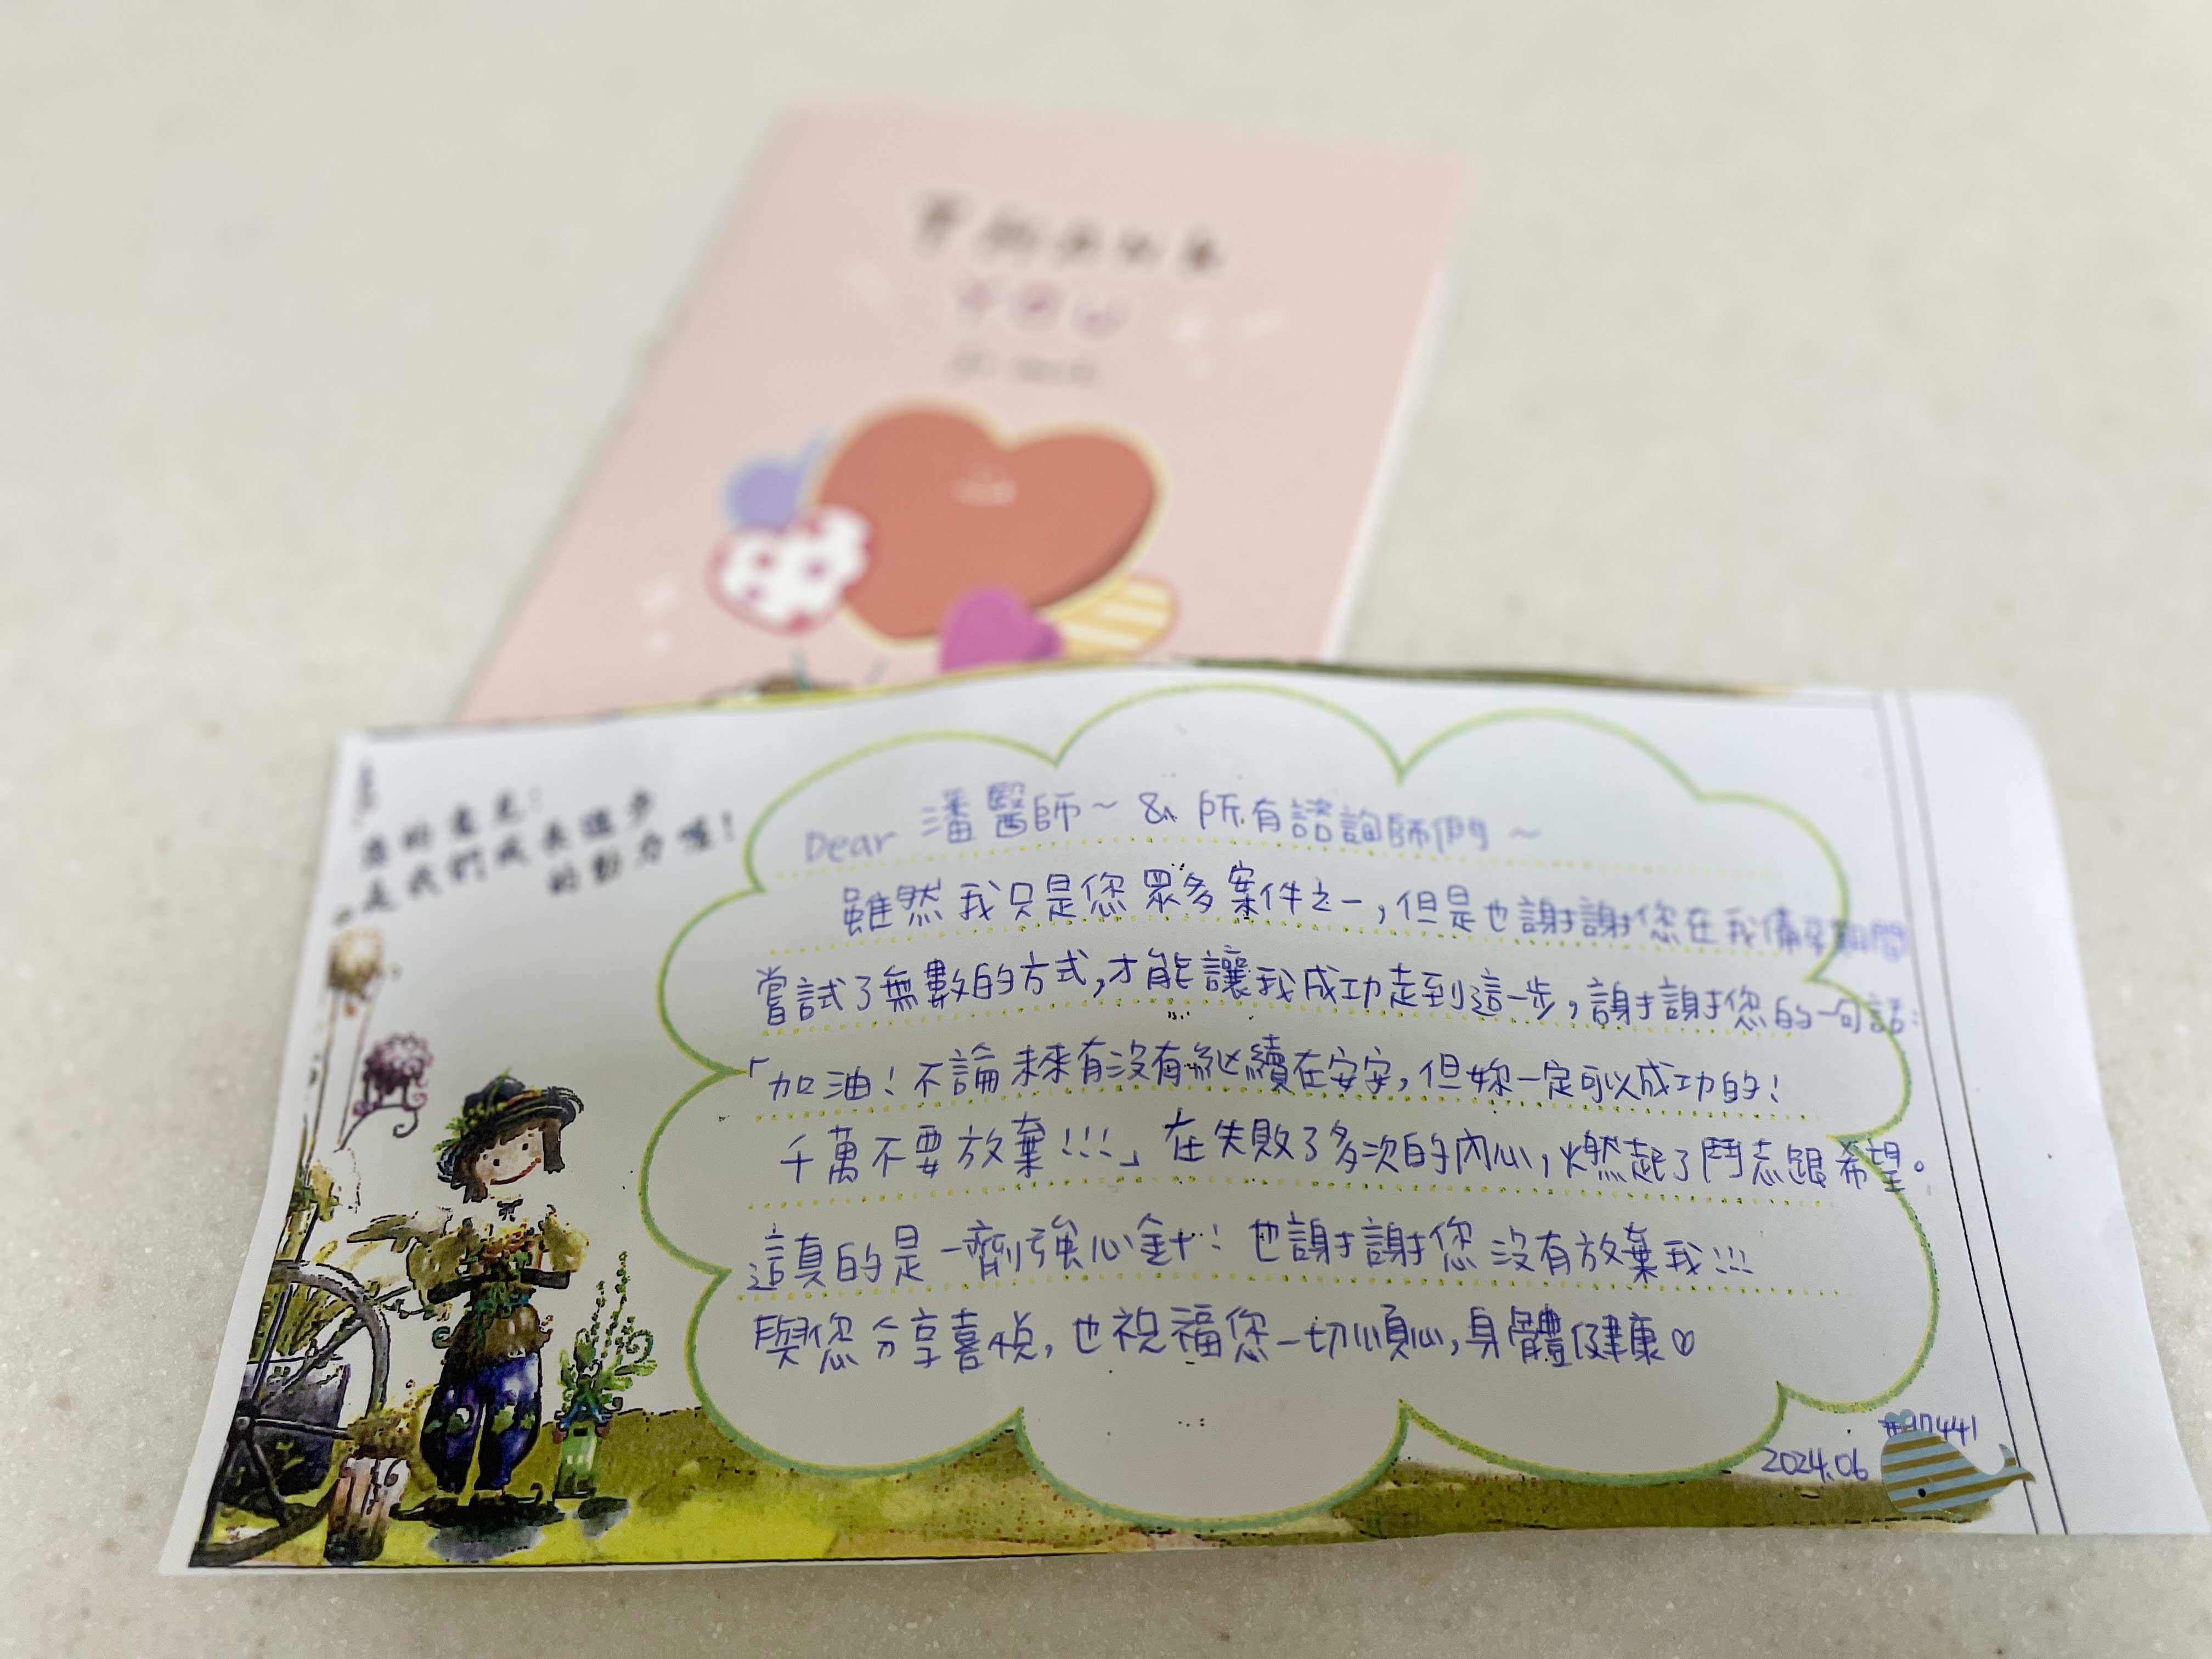 孕婦健康手冊
您的意見:
是我們成長進步
的動力喔!
Dear 潘醫師~ & 所有諮詢師們~
雖然我只是您眾多案件之一,但是也謝謝您在我備孕期間
嘗試了無數的方式,才能讓我成功走到這一步,謝謝您的一句話:
「加油!不論未來有沒有繼續在安安,但妳一定可以成功的!
千萬不要放棄!!!」在失敗了多次的內心,燃起了鬥志跟希望。
這真的是一劑強心針!也謝謝您沒有放棄我!!!
與您分享喜悅,也祝福您一切順心,身體健康♡
2024.06